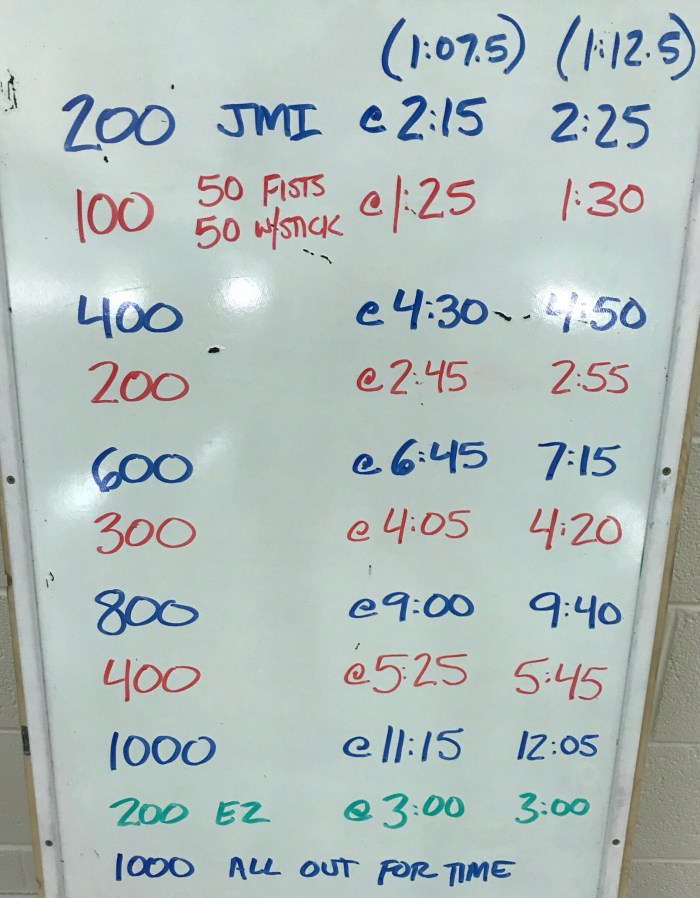 (1:07.5) (1:12.5)
200 JMI @ 2:15 2:25
100 50 FISTS 50 W/STICK @ 1:25 1:30
400 @ 4:30 4:50
200 @ 2:45 2:55
600 @ 6:45 7:15
300 @ 4:05 4:20
800 @ 9:00 9:40
400 @ 5:25 5:45
1000 @ 11:15 12:05
200 EZ @ 3:00 3:00
1000 ALL OUT FOR TIME